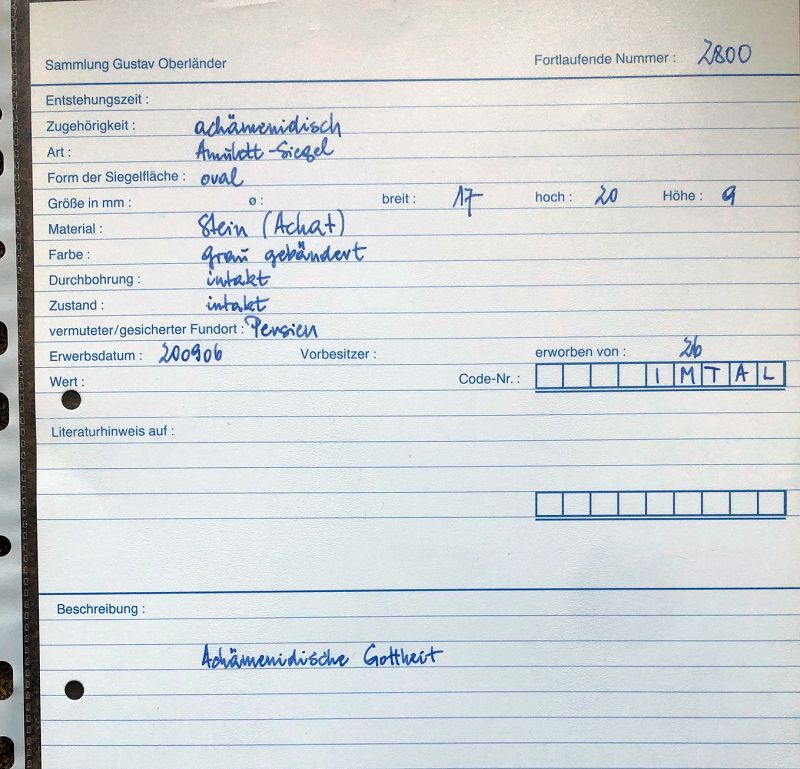 Sammlung Gustav Oberländer Fortlaufende Nummer : 2800
Entstehungszeit :
Zugehörigkeit : achämenidisch
Art : Amulett-Siegel
Form der Siegelfläche : oval
Größe in mm : ø : breit : 17 hoch : 20 Höhe : 9
Material : Stein (Achat)
Farbe : grau gebändert
Durchbohrung : intakt
Zustand : intakt
vermuteter/gesicherter Fundort : Persien
Erwerbsdatum : 200906 Vorbesitzer : erworben von : 26
Wert : Code-Nr. : I M T A L
Literaturhinweis auf :
Beschreibung :
Achämenidische Gottheit